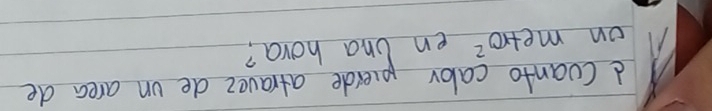 ¿ Cuanto calor pierde atravez de un area de
un metro² en una hora?